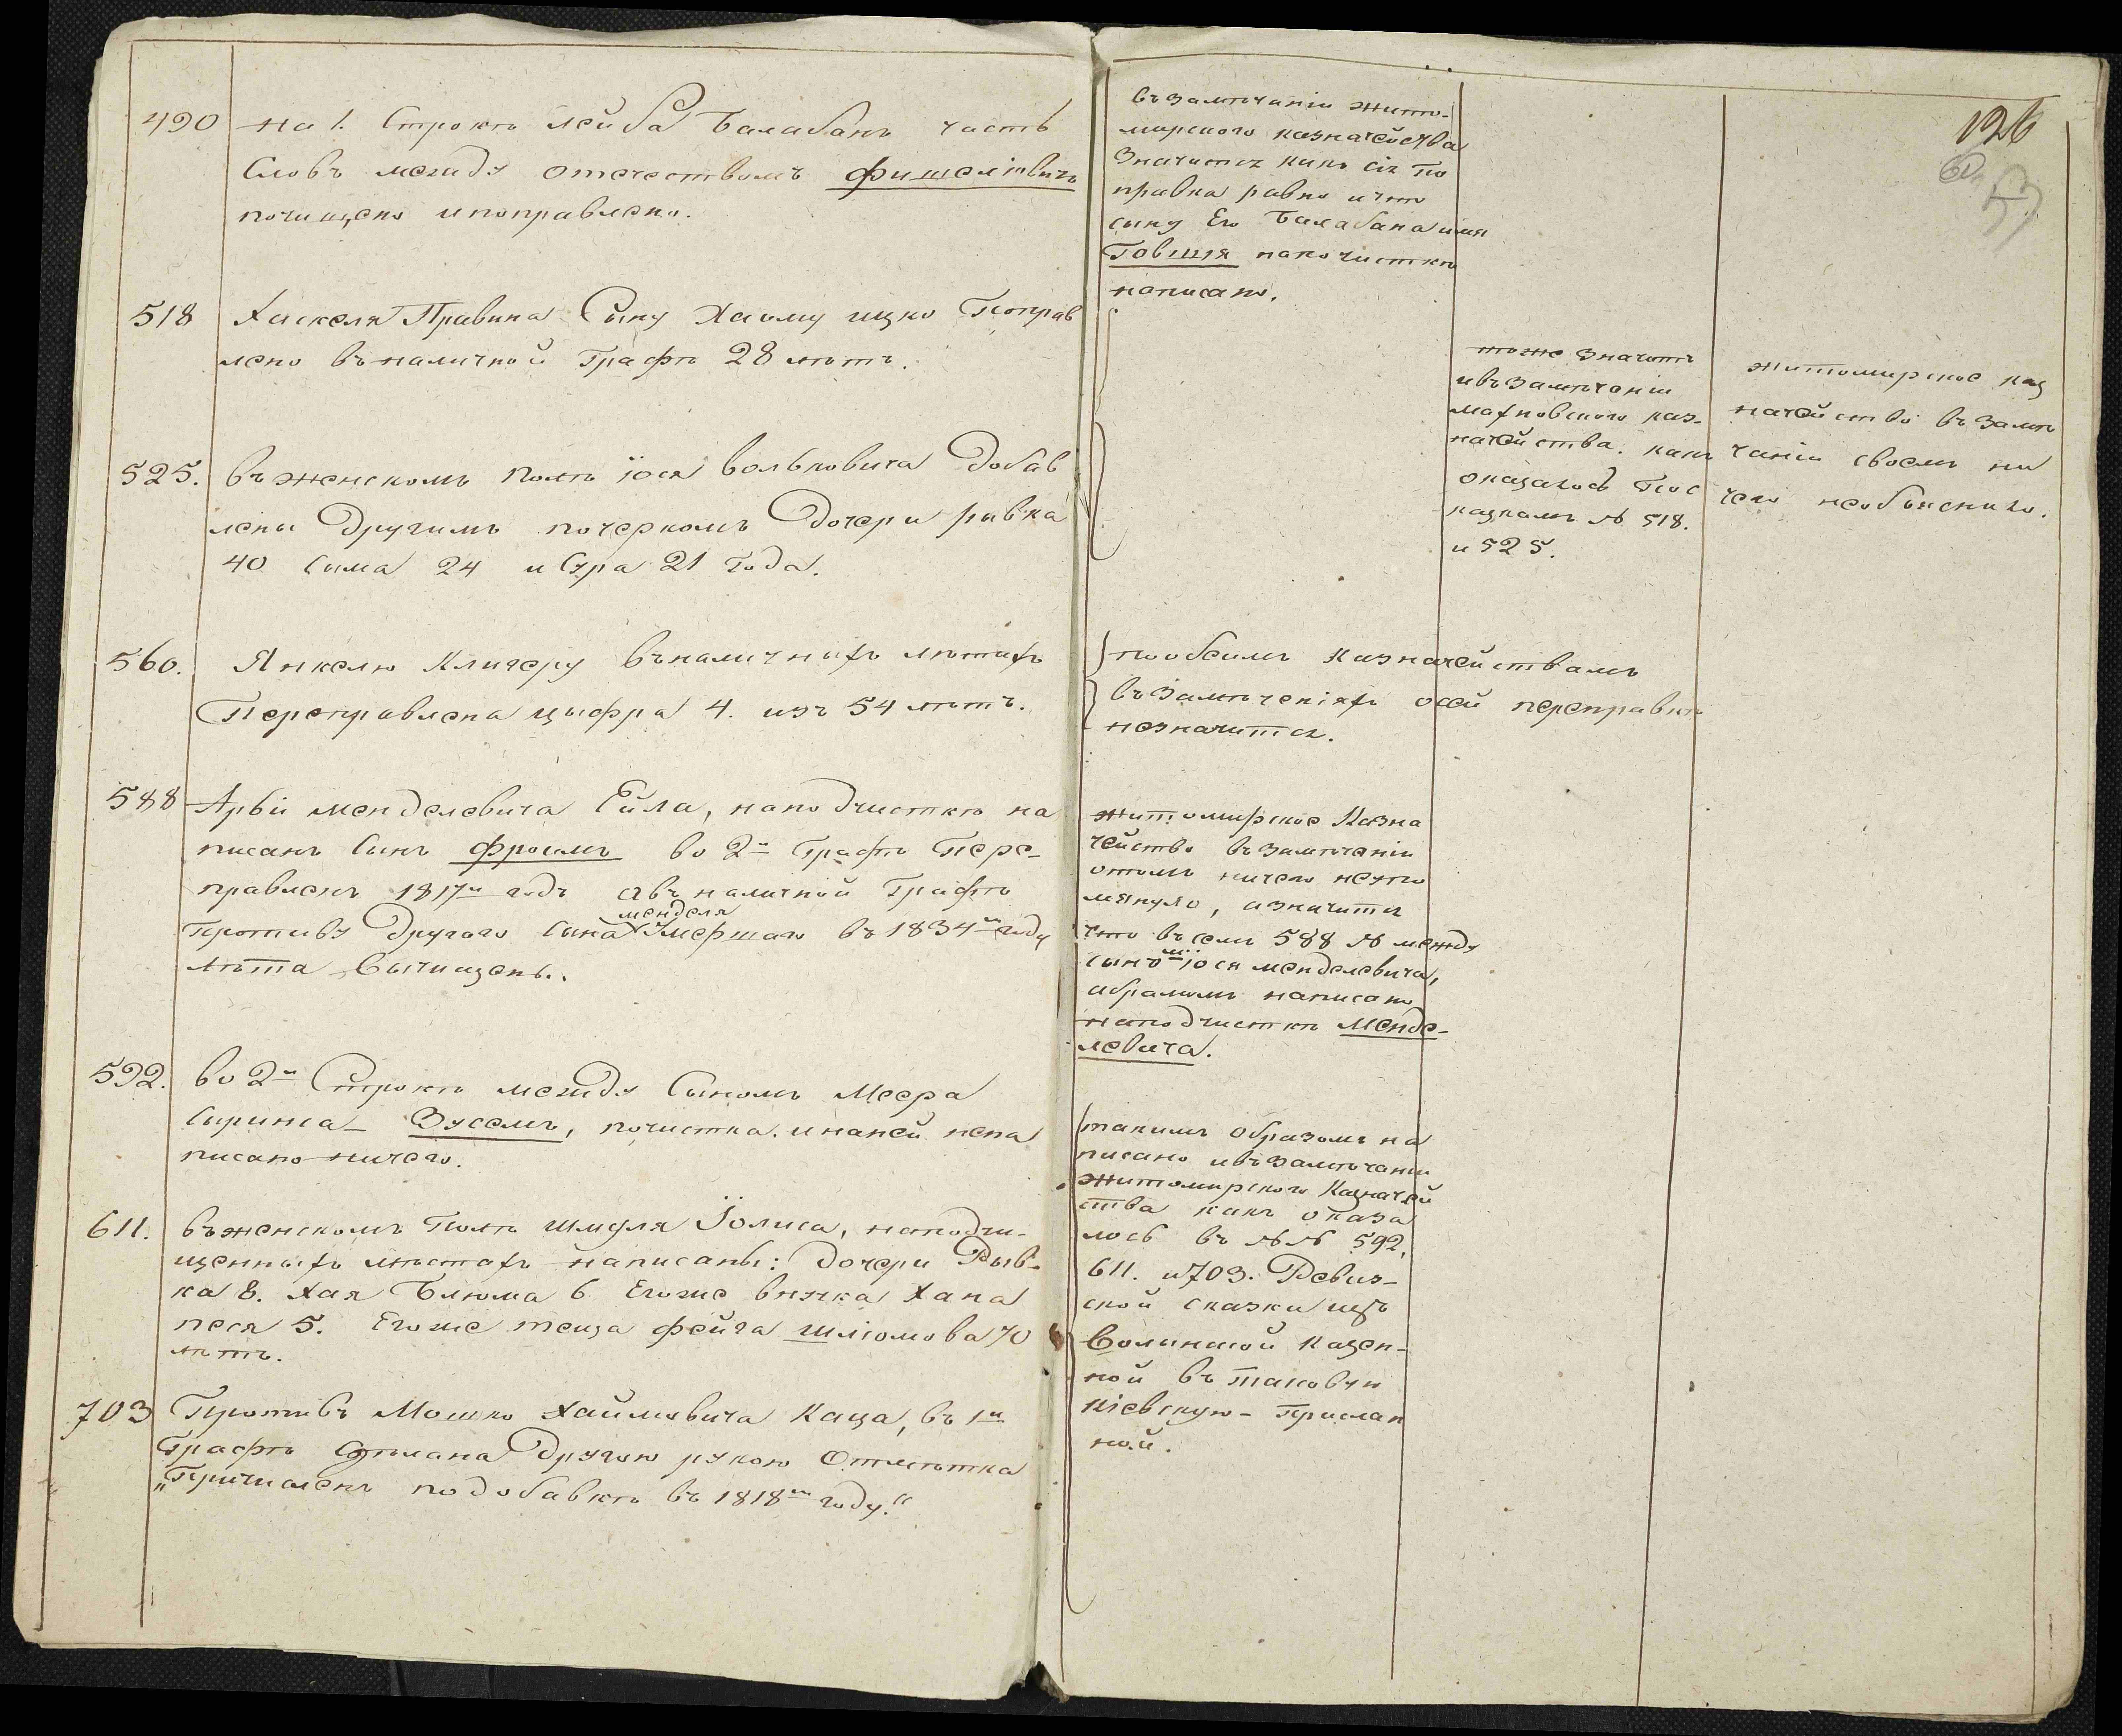 490 на 1. Строкѣ лейба Балабанъ часть
Словъ между отечествомъ фишелiовичъ
почищено и поправлено.
518 Хаскеля Правина Сыну Хаиму ицко Поправ
лено въ наличной Графѣ 28 лѣтъ.
525. въ женскомъ полѣ iося вольковича Добав
лены Другимъ почеркомъ Дочери ривка
40 Сима 24 и Сура 21 Года.
560. Янкелю Кличеру въ наличныхъ лѣтахъ
Переправлена цыфра 4. изъ 54 лѣтъ.
588 Арьи менделевича Ейла, на подчисткѣ на
писанъ Сынъ Фроимъ во 2й Графѣ Пере-
правленъ 1817й годъ а въ наличной Графѣ
менделя
противу Другаго Сына умершаго въ 1834м году
лѣта Вычищены.
592. во 2й Строкѣ между Сыномъ Меера
Сыринса - Зуселъ, почистка. и на ней нена
писано ничего.
611. въ женскомъ Полѣ шмуля Іолиса, на подчи-
щенныхъ мѣстахъ написаны: Дочери Рыв-
ка 8. Хая Блюма 6 Его же внучка Хана
песя 5. Его же теща фейга шлiомова 70
лѣтъ.
703 Противъ Мошко Хаймовича Каца, въ 1й
Графѣ Сдѣлана Другою рукою Отмѣтка
„Причисленъ по добавкѣ въ 1818м году.“
126
въ замѣчанiи жито-
мирского казначейства
Значится какъ сiя по
правка равно и что
сыну Его Балабана имя
Говшiя на почисткѣ
написано.
тоже значитъ
и въ замѣчанiи
махновского каз-
начейства. какъ
оказалось по с
казкамъ № 518.
и 525.
житомирское каз
начейство въ замѣ
чанiи своемъ ни
чего необъяснило.
по обеимъ Казначействамъ
въ замѣченiяхъ о сей переправкѣ
незначится.
житомирское Казна
чейство въ замѣчанiи
о томъ ничего неупо
мянуло, а значится
что въ семъ 588 № между
сыномъ iося менделевича,
абрамомъ написано
на подчисткѣ Менде-
левича.
такимъ образомъ на
писано и въ замѣчанiи
житомирского Казначей
ства какъ оказа
лось въ №№ 592,
611. и 703. Ревиз-
ской сказки изъ
Волынской Казен-
ной въ таковую
Кiевскую - прислан
ной.